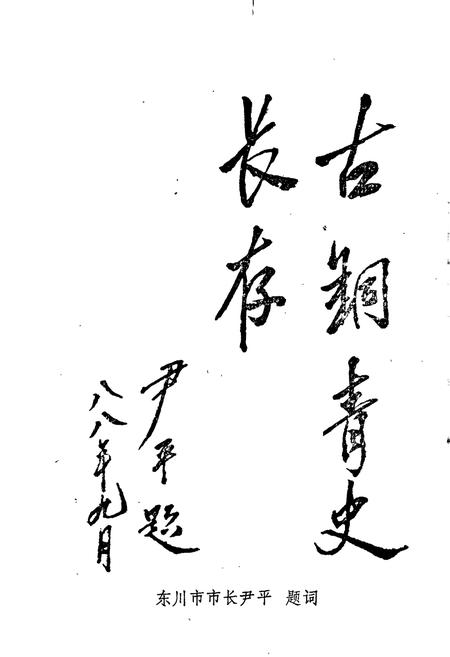 古铜青史
长存
尹平题
八八年九月
东川市市长尹平 题词